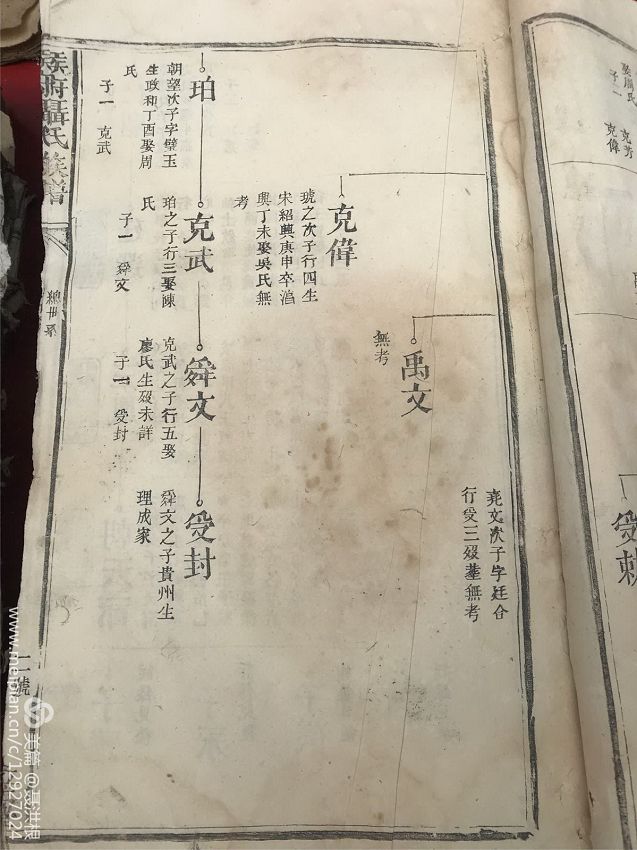 娶周氏
子二
克偉
受
堯文次子字廷合
行受三歿塟無考
禹文
無考
克偉
琥之次子行四生
宋紹興庚申卒
興丁未娶吳氏無
考
珀
朝望次子字璧玉
生政和丁酉娶周
氏
子一 克武
克武
珀之子行三娶陳
氏
子一 舜文
舜文
克武之子行五娶
廖氏生歿未詳
子一 受封
受封
舜文之子貴州生
理成家
聶氏族譜
二號
美篇@聂洪根
www.meipian.cn/c/12927024